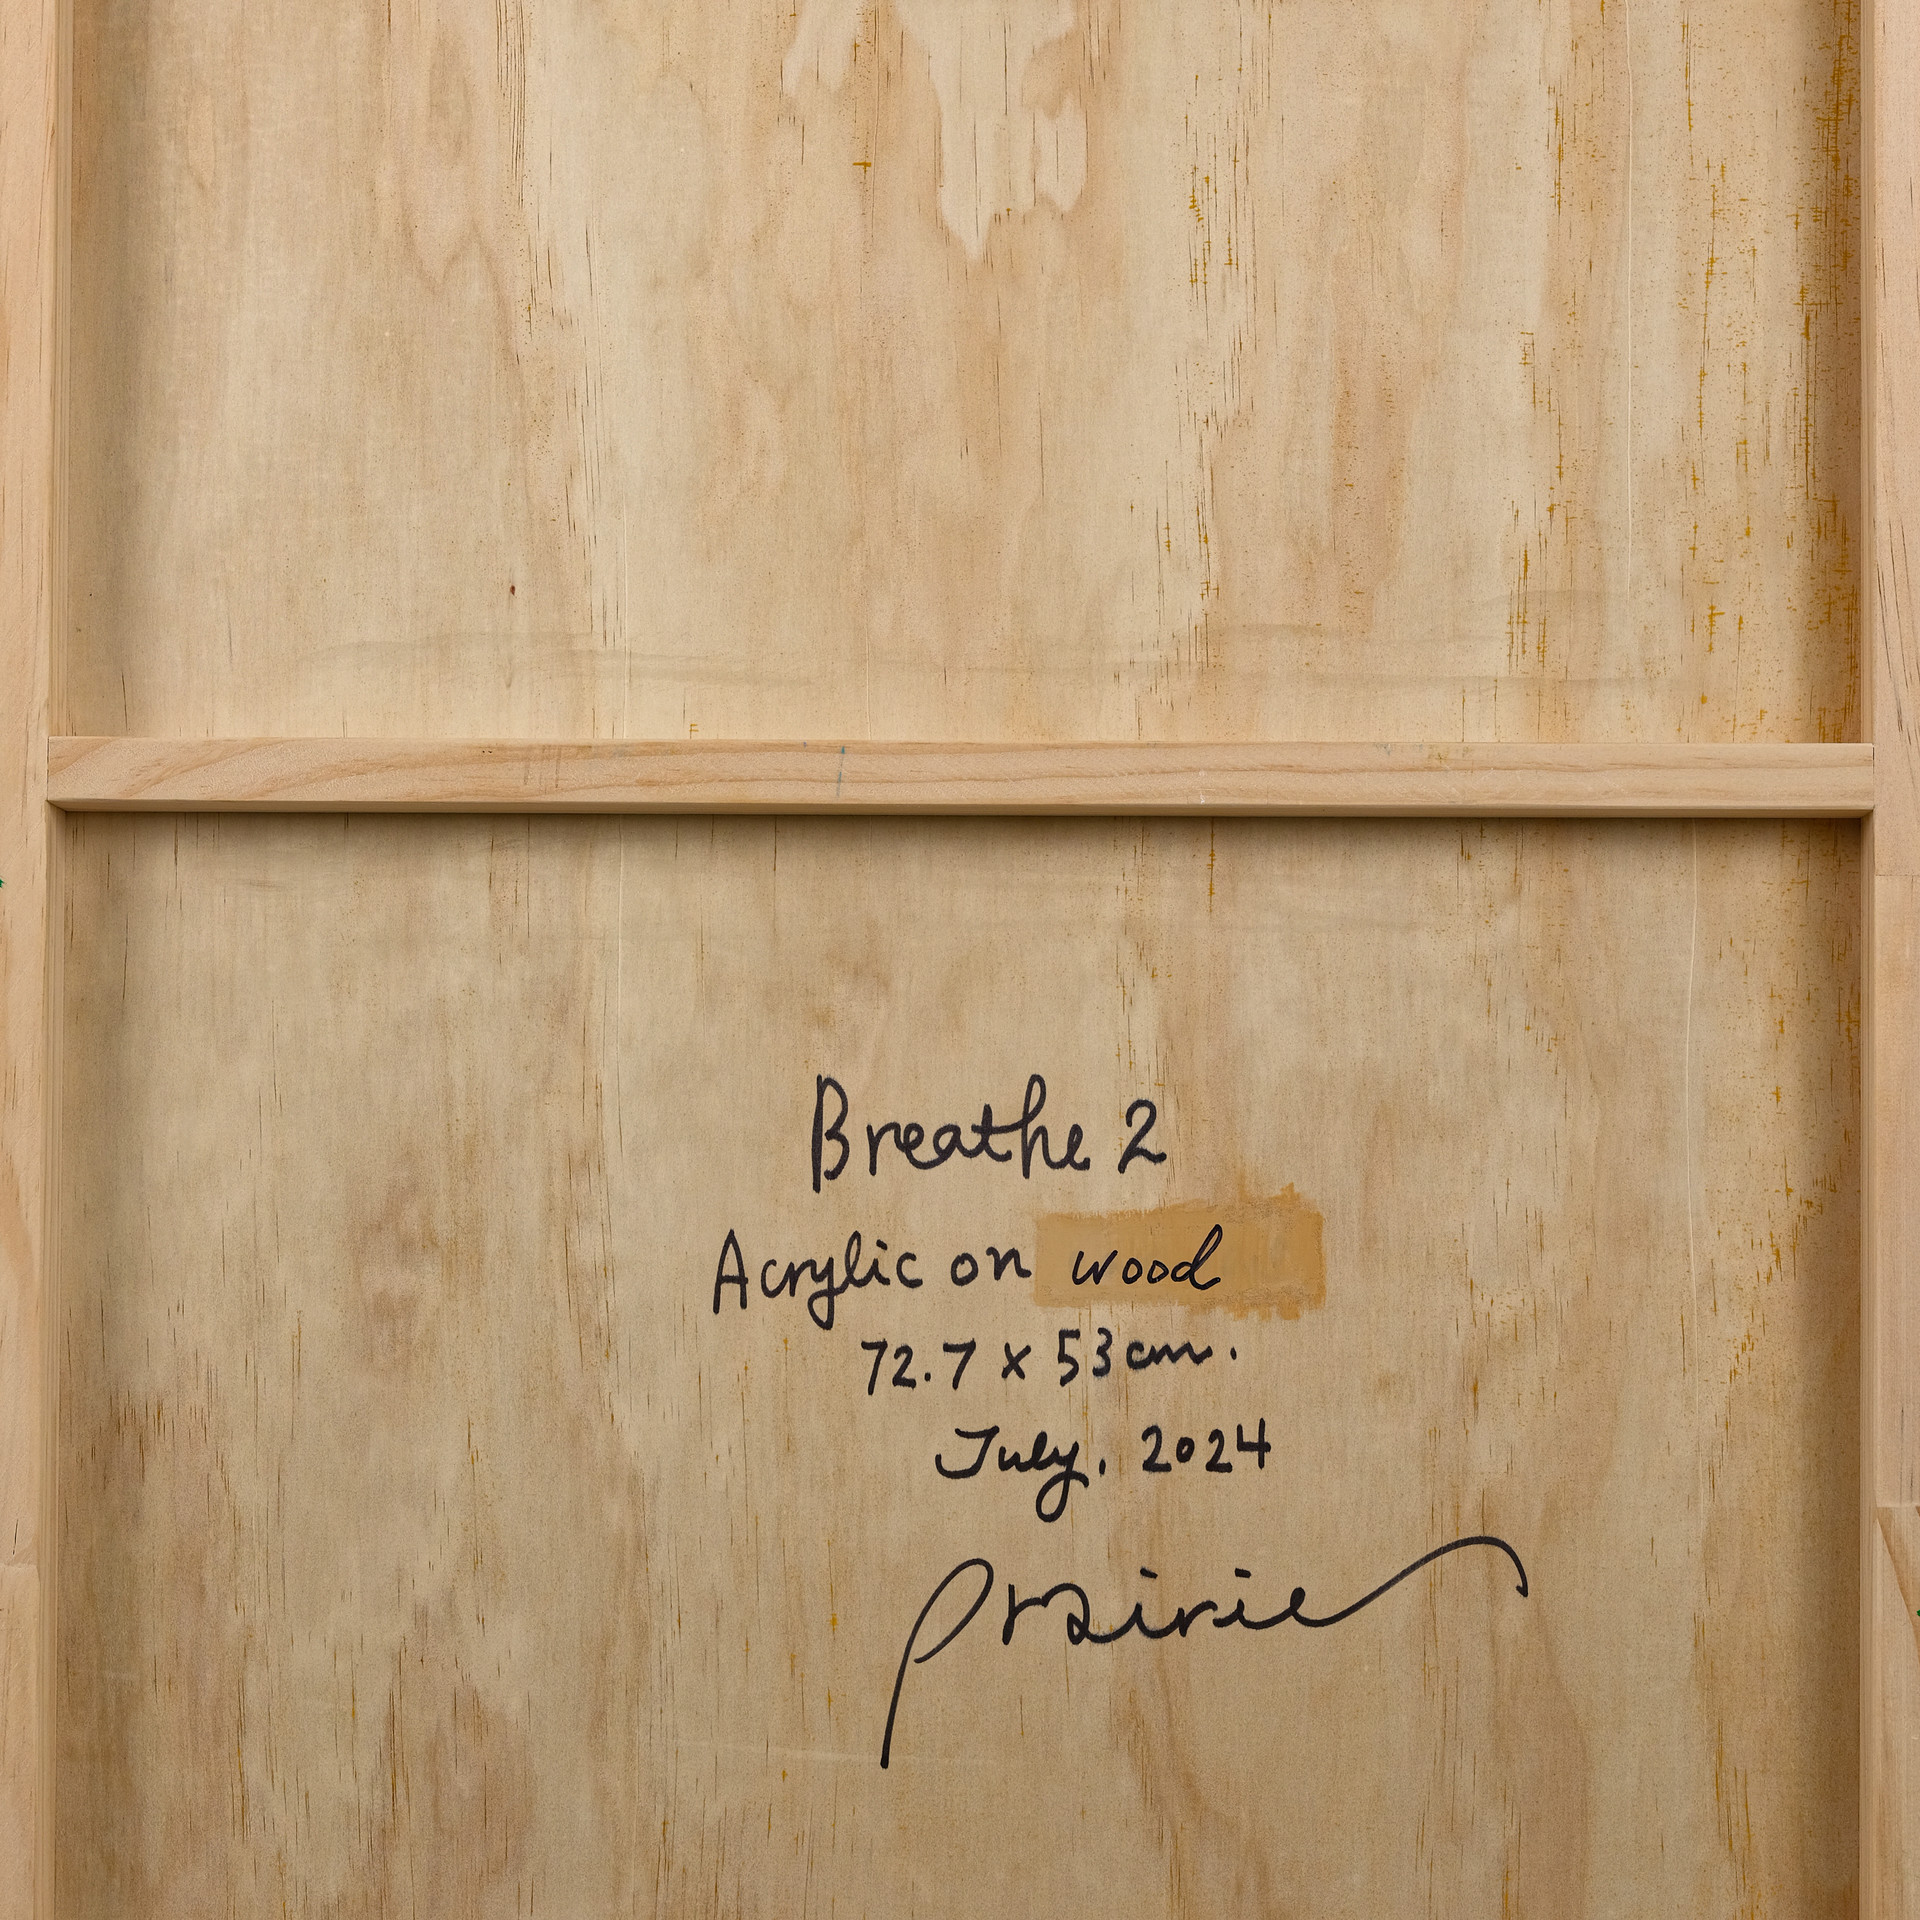 Breathe 2
Acrylic on wood
72.7 x 53 cm.
July. 2024
Prairie